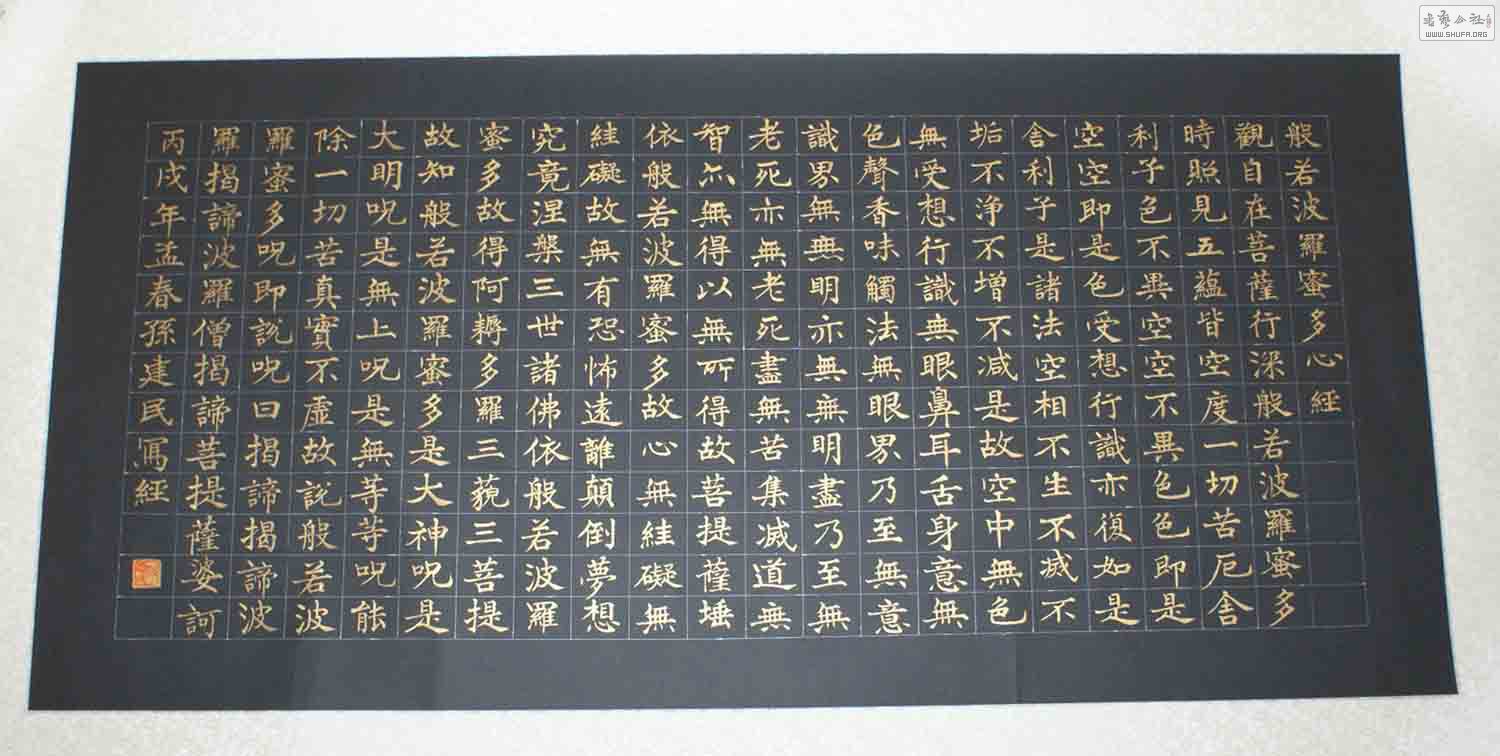 般若波羅蜜多心経
觀自在菩薩行深般若波羅蜜多
時照見五蘊皆空度一切苦厄舍
利子色不異空空不異色色即是
空空即是色受想行識亦復如是
舍利子是諸法空相不生不滅不
垢不淨不增不減是故空中無色
無受想行識無眼鼻耳舌身意無
色聲香味觸法無眼界乃至無意
識界無無明亦無無明盡乃至無
老死亦無老死盡無苦集滅道無
智亦無得以無所得故菩提薩埵
依般若波羅蜜多故心無絓礙無
絓礙故無有恐怖遠離顛倒夢想
究竟涅槃三世諸佛依般若波羅
蜜多故得阿耨多羅三藐三菩提
故知般若波羅蜜多是大神呪是
大明呪是無上呪是無等等呪能
除一切苦真實不虛故說般若波
羅蜜多呪即說呪曰揭諦揭諦波
羅揭諦波羅僧揭諦菩提薩婆訶
丙戌年孟春孫建民寫經
书艺公社
WWW.SHUFA.ORG